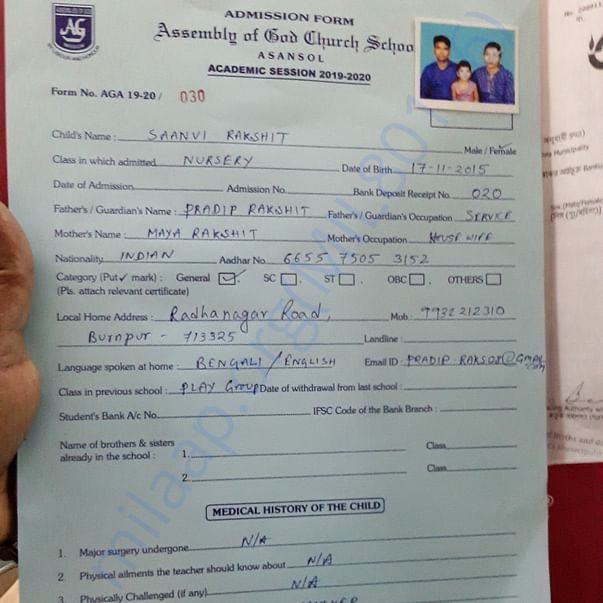 ADMISSION FORM
Assembly of God Church Schoo
ASANSOL
ACADEMIC SESSION 2019-2020
Form No. AGA 19-20/ 030
Child's Name : SAANVI RAKSHIT Male / Female
Class in which admitted NURSERY Date of Birth 17-11-2015
Date of Admission Admission No. Bank Deposit Receipt No. 020
Father's / Guardian's Name : PRADIP RAKSHIT Father's / Guardian's Occupation SERVICE
Mother's Name : MAYA RAKSHIT Mother's Occupation HOUSE WIFE
Nationality INDIAN Aadhar No 6655 7505 3152
Category (Put ✓ mark) : General ✓, SC, ST, OBC, OTHERS
(Pls. attach relevant certificate)
Local Home Address : Radhanagar Road, Mob : 9932212310
Burnpur - 713325 Landline :
Language spoken at home : BENGALI / ENGLISH Email ID :
Class in previous school : PLAY GROUP Date of withdrawal from last school :
Student's Bank A/c No. IFSC Code of the Bank Branch :
Name of brothers & sisters
already in the school : 1. Class
2. Class
MEDICAL HISTORY OF THE CHILD
1. Major surgery undergone N/A
2. Physical ailments the teacher should know about N/A
3. Physically Challenged (if any) N/A